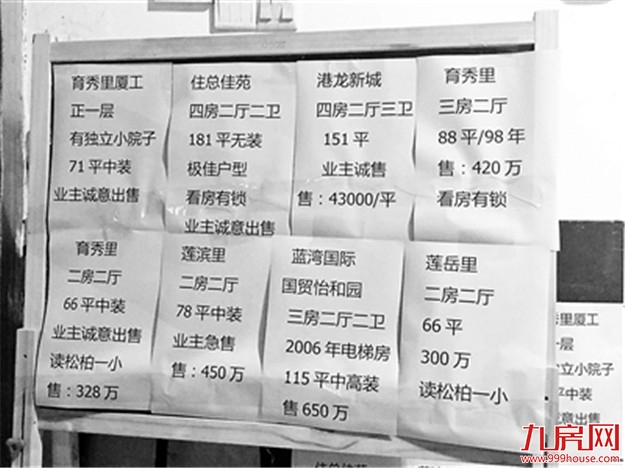 育秀里厦工
正一层
有独立小院子
71平中装
业主诚意出售
住总佳苑
四房二厅二卫
181平无装
极佳户型
看房有锁
业主诚意出售
港龙新城
四房二厅三卫
151平
业主诚售
售：43000/平
育秀里
三房二厅
88平/98年
售：420万
看房有锁
育秀里
二房二厅
66平中装
业主诚意出售
读松柏一小
售：328万
莲滨里
二房二厅
78平中装
业主急售
售：450万
蓝湾国际
国贸怡和园
三房二厅二卫
2006年电梯房
115平中高装
售650万
莲岳里
二房二厅
66平
300万
读松柏一小
秀里厦工
一层
独立小院子
平中装
诚意出售
住总佳苑
九房网
www.999house.com